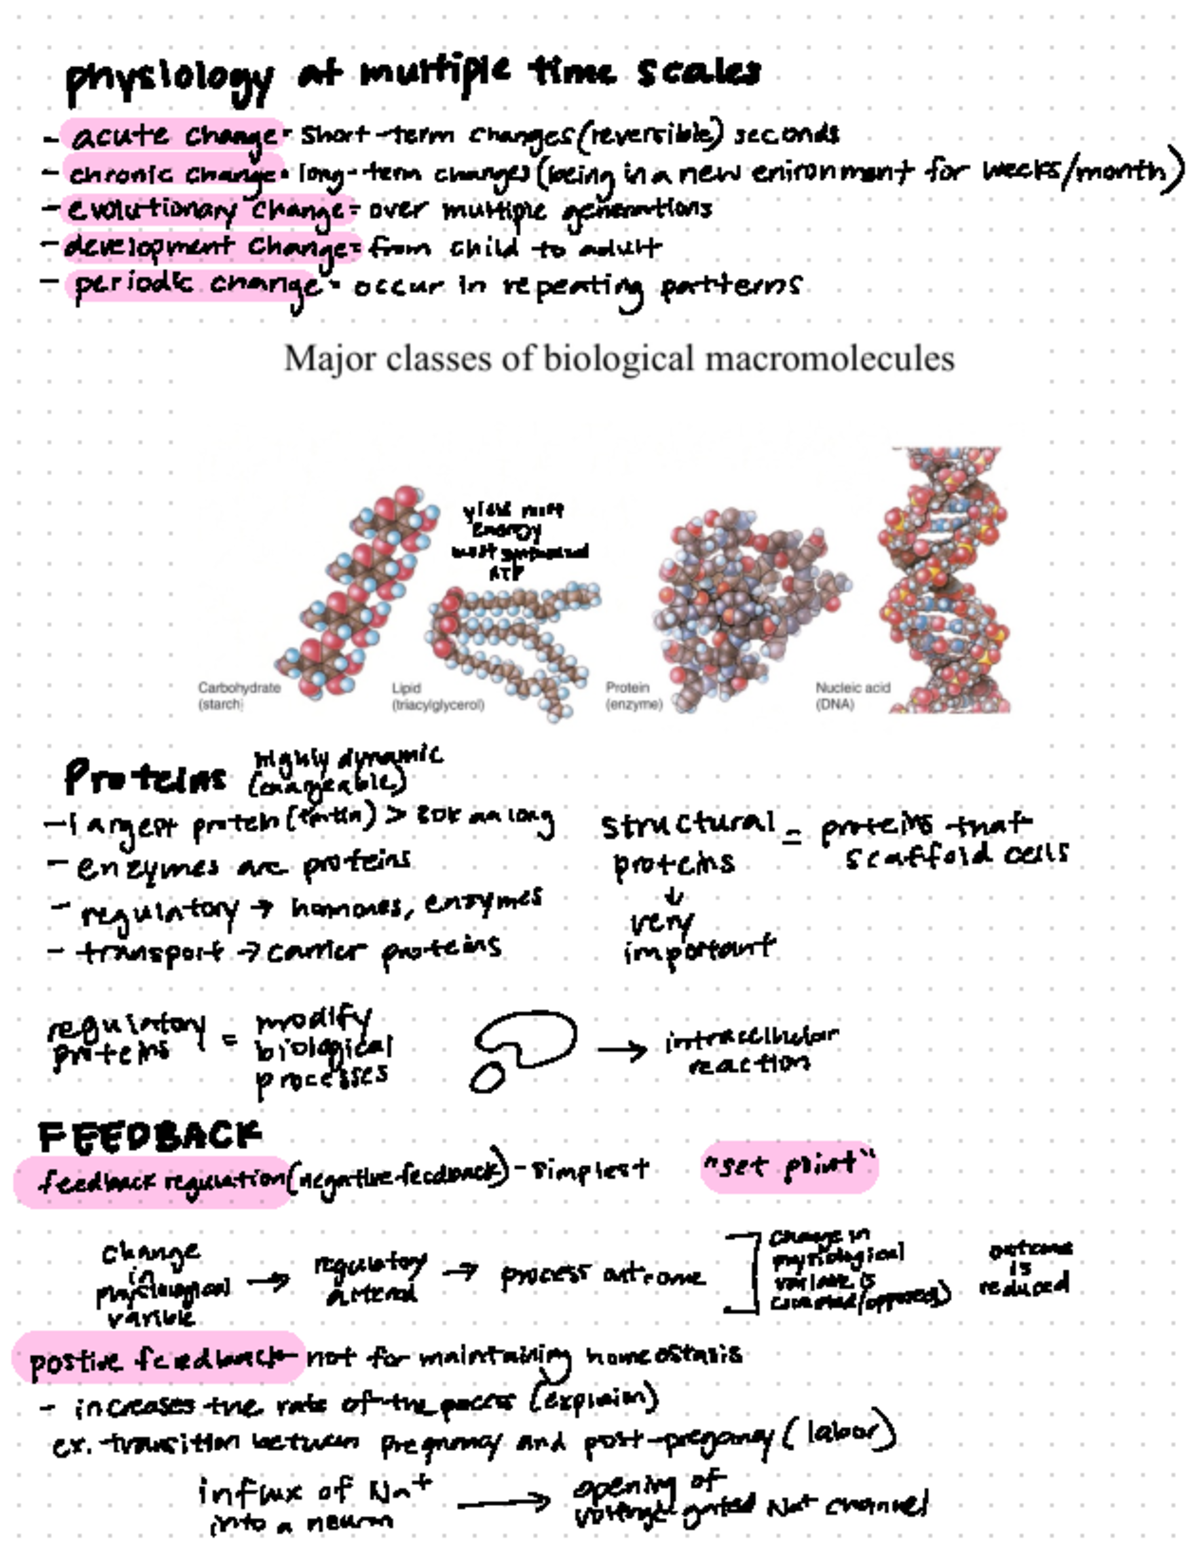 physiology at multiple time scales
- acute change = short-term changes (reversible) seconds
- chronic change = long-term changes (being in a new enironment for weeks/month)
- evolutionary change = over multiple generations
- development change = from child to adult
- periodic change = occur in repeating patterns
Major classes of biological macromolecules
yield most
energy
most
ATP
Carbohydrate
(starch)
Lipid
(triacylglycerol)
Protein
(enzyme)
Nucleic acid
(DNA)
Proteins highly dynamic
(changeable)
- largest protein > 20k aa long
- enzymes are proteins
- regulatory → hormones, enzymes
- transport → carrier proteins
structural = proteins that
proteins scaffold cells
↓
very
important
regulatory = modify
proteins biological
processes
→ intracellular
reaction
FEEDBACK
feedback regulation (negative feedback) - simplest "set point"
change
in
physiological
varible
→ regulatory
→ process outcome
change in
physiological
variable is
outcome
is
reduced
postive feedback - not for maintaining homeostasis
- increases the rate of the process
ex. transition between pregnancy and post-pregancy (labor)
influx of Na+
into a neuron
→ opening of
voltage-gated Na+ channel